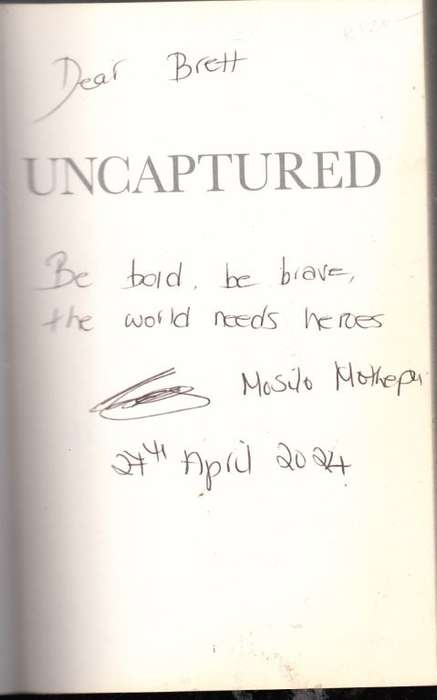 Dear Brett
UNCAPTURED
Be bold, be brave,
the world needs heroes
Mosilo Mothepu
27th April 2024
i